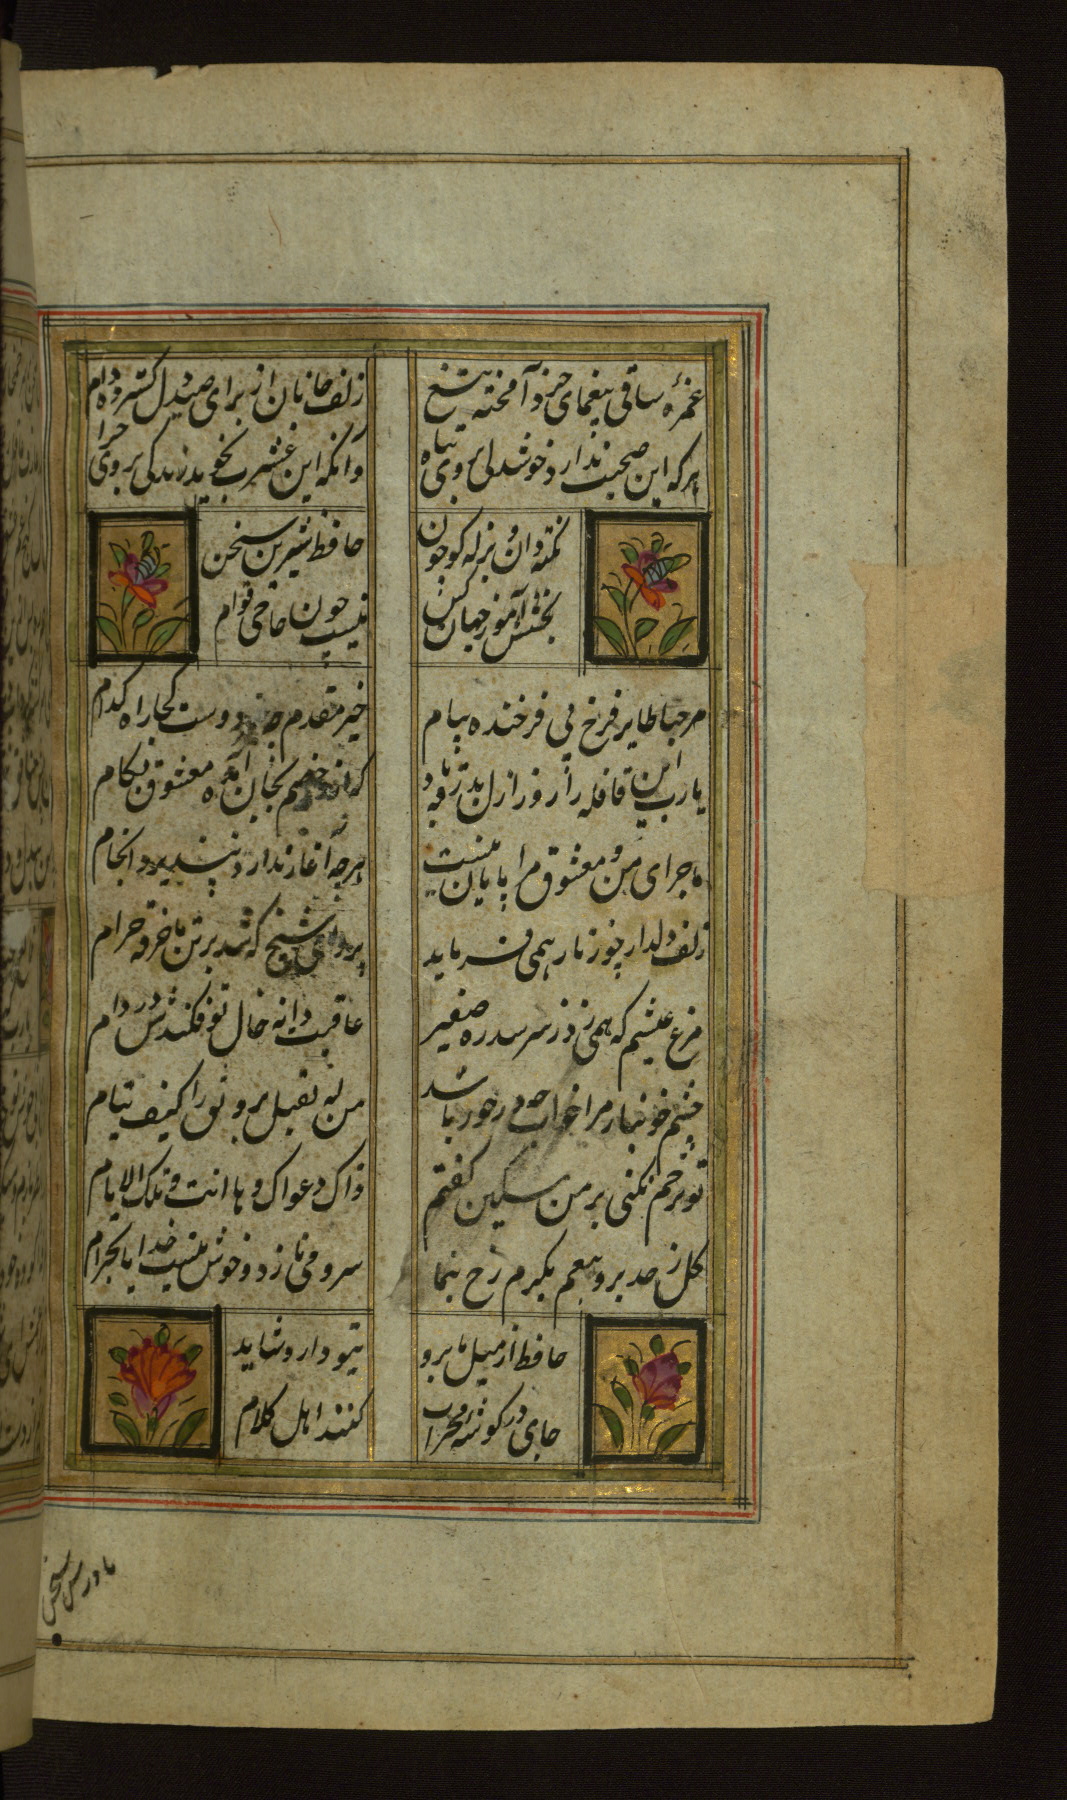 غمزهٔ ساقی بیغمای خرد آمخته تیغ
زلف جانان از برای صید دل گسترده دام
هر که این صحبت ندارد خوشدلی بر وی تباه
وانکه این عشرت نجوید زندگی بر وی حرام
نکته دان و بزله گو چون
حافظ شیرین سخن
بخشش آموز جهان کس
نیست چون حاجی قوام
مرحبا طایر فرخ پی فرخنده پیام
خیر مقدم چه خبر دوست کجا راه کدام
یارب این قافله را روز ازل بدرقه باد
که ازو خصم بجان آمد و معشوق بکام
ماجرای من و معشوق مرا پایان نیست
هرچه آغاز ندارد نپذیرد انجام
زلف دلدار چو زنار همی فرماید
برو ای شیخ که شد بر تن ما خرقه حرام
مرغ عیشم که همی زد ز سر سدره صفیر
عاقبت دانه خال تو فکندش در دام
چشم خونبار مرا خواب چه در خور باشد
من له یقبل برو نورا کیف ینام
تو ترحم نکنی بر من مسکین گفتم
ذاک دعوای وها انت و تلک الایام
گل ز حد برد تنعم بکرم رخ بنما
سرو می نازد و خوش نیست خدا یا بخرام
حافظ ار میل بابرو
ی تو دارد شاید
جای در گوشهٔ محراب
کنند اهل کلام
ما درس سحر